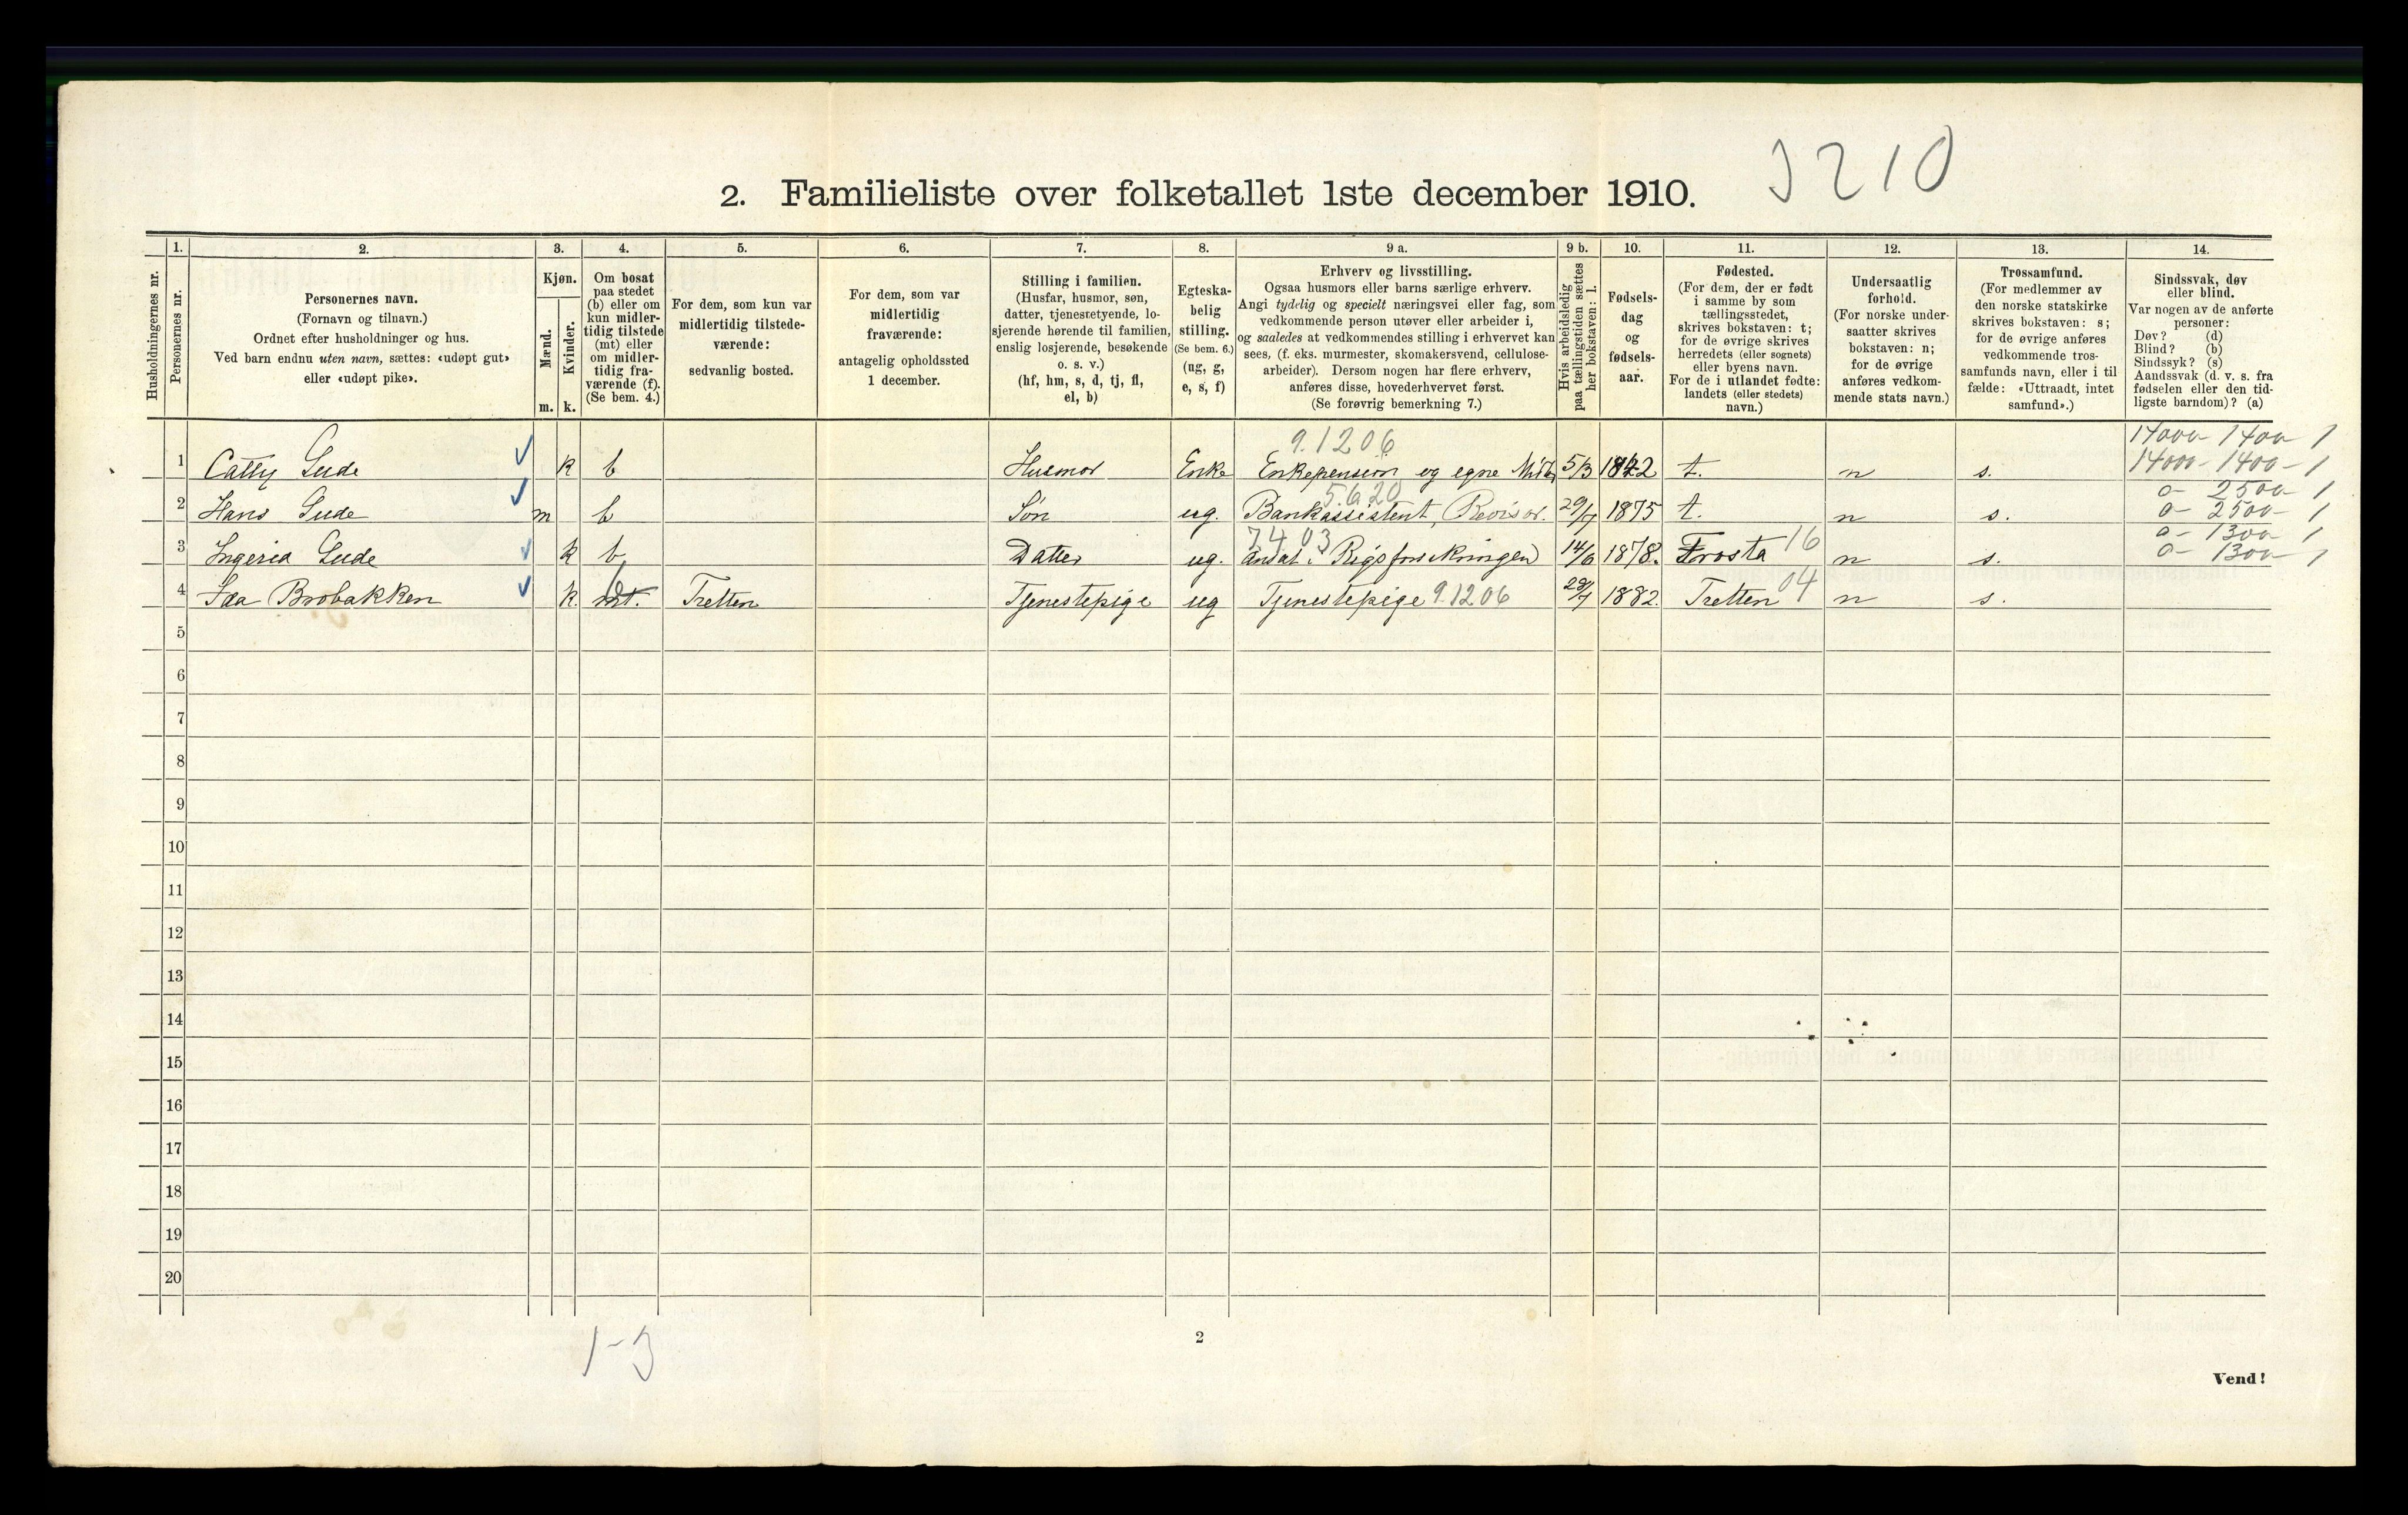 3210
2. Familieliste over folketallet 1ste december 1910.
Husholdningernes nr.
1. 2. 3. 4. 5. 6. 7. 8. 9 a. 9 b. 10. 11. 12. 13. 14.
Personernes nr.
Personernes navn.
(Fornavn og tilnavn.)
Ordnet efter husholdninger og hus.
Ved barn endnu uten navn, sættes: «udøpt gut»
eller «udøpt pike».
Kjøn.
Mænd.
Kvinder.
m. k.
Om bosat
paa stedet
(b) eller om
kun midler-
tidig tilstede
(mt) eller
om midler-
tidig fra-
værende (f).
(Se bem. 4.)
For dem, som kun var
midlertidig tilstede-
værende:
sedvanlig bosted.
For dem, som var
midlertidig
fraværende:
antagelig opholdssted
1 december.
Stilling i familien.
(Husfar, husmor, søn,
datter, tjenestetyende, lo-
sjerende hørende til familien,
enslig losjerende, besøkende
o. s. v.)
(hf, hm, s, d, tj, fl,
el, b)
Egteska-
belig
stilling.
(Se bem. 6.)
(ug, g,
e, s, f)
Erhverv og livsstilling.
Ogsaa husmors eller barns særlige erhverv.
Angi tydelig og specielt næringsvei eller fag, som
vedkommende person utøver eller arbeider i,
og saaledes at vedkommendes stilling i erhvervet kan
sees, (f. eks. murmester, skomakersvend, cellulose-
arbeider). Dersom nogen har flere erhverv,
anføres disse, hovederhvervet først.
(Se forøvrig bemerkning 7.)
Hvis arbeidsledig
paa tællingstiden sættes
her bokstaven: l.
Fødsels-
dag
og
fødsels-
aar.
Fødested.
(For dem, der er født
i samme by som
tællingsstedet,
skrives bokstaven: t;
for de øvrige skrives
herredets (eller sognets)
eller byens navn.
For de i utlandet fødte:
landets (eller stedets)
navn.)
Undersaatlig
forhold.
(For norske under-
saatter skrives
bokstaven: n;
for de øvrige
anføres vedkom-
mende stats navn.)
Trossamfund.
(For medlemmer av
den norske statskirke
skrives bokstaven: s;
for de øvrige anføres
vedkommende tros-
samfunds navn, eller i til
fælde: «Uttraadt, intet
samfund».)
Sindssvak, døv
eller blind.
Var nogen av de anførte
personer:
Døv? (d)
Blind? (b)
Sindssyk? (s)
Aandssvak (d. v. s. fra
fødselen eller den tid-
ligste barndom)? (a)
9.1206 14000 - 1400 - 1
1 Catty Gude k b Husmor Enke Enkepension og egne Midler 5/3 1842 t. n s. 14000 - 1400 - 1
5.620 0 - 2500 - 1
2 Hans Gude m b Søn ug. Bankassistent, Revisor. 29/7 1875 t. n s. 0 - 2500 - 1
7403 0 - 1300 - 1
3 Ingerid Gude k b Datter ug. Ansat i Rigsforsikringen 14/6 1878. Frosta 16 n s. 0 - 1300 - 1
4 Ida Brobakken k. mt. b Tretten Tjenestepige ug Tjenestepige 9.1206 1882. Tretten 04 n s.
5
6
7
8
9
10
11
12
13
14
15
16
17
18
19
20
1-3
2
Vend!